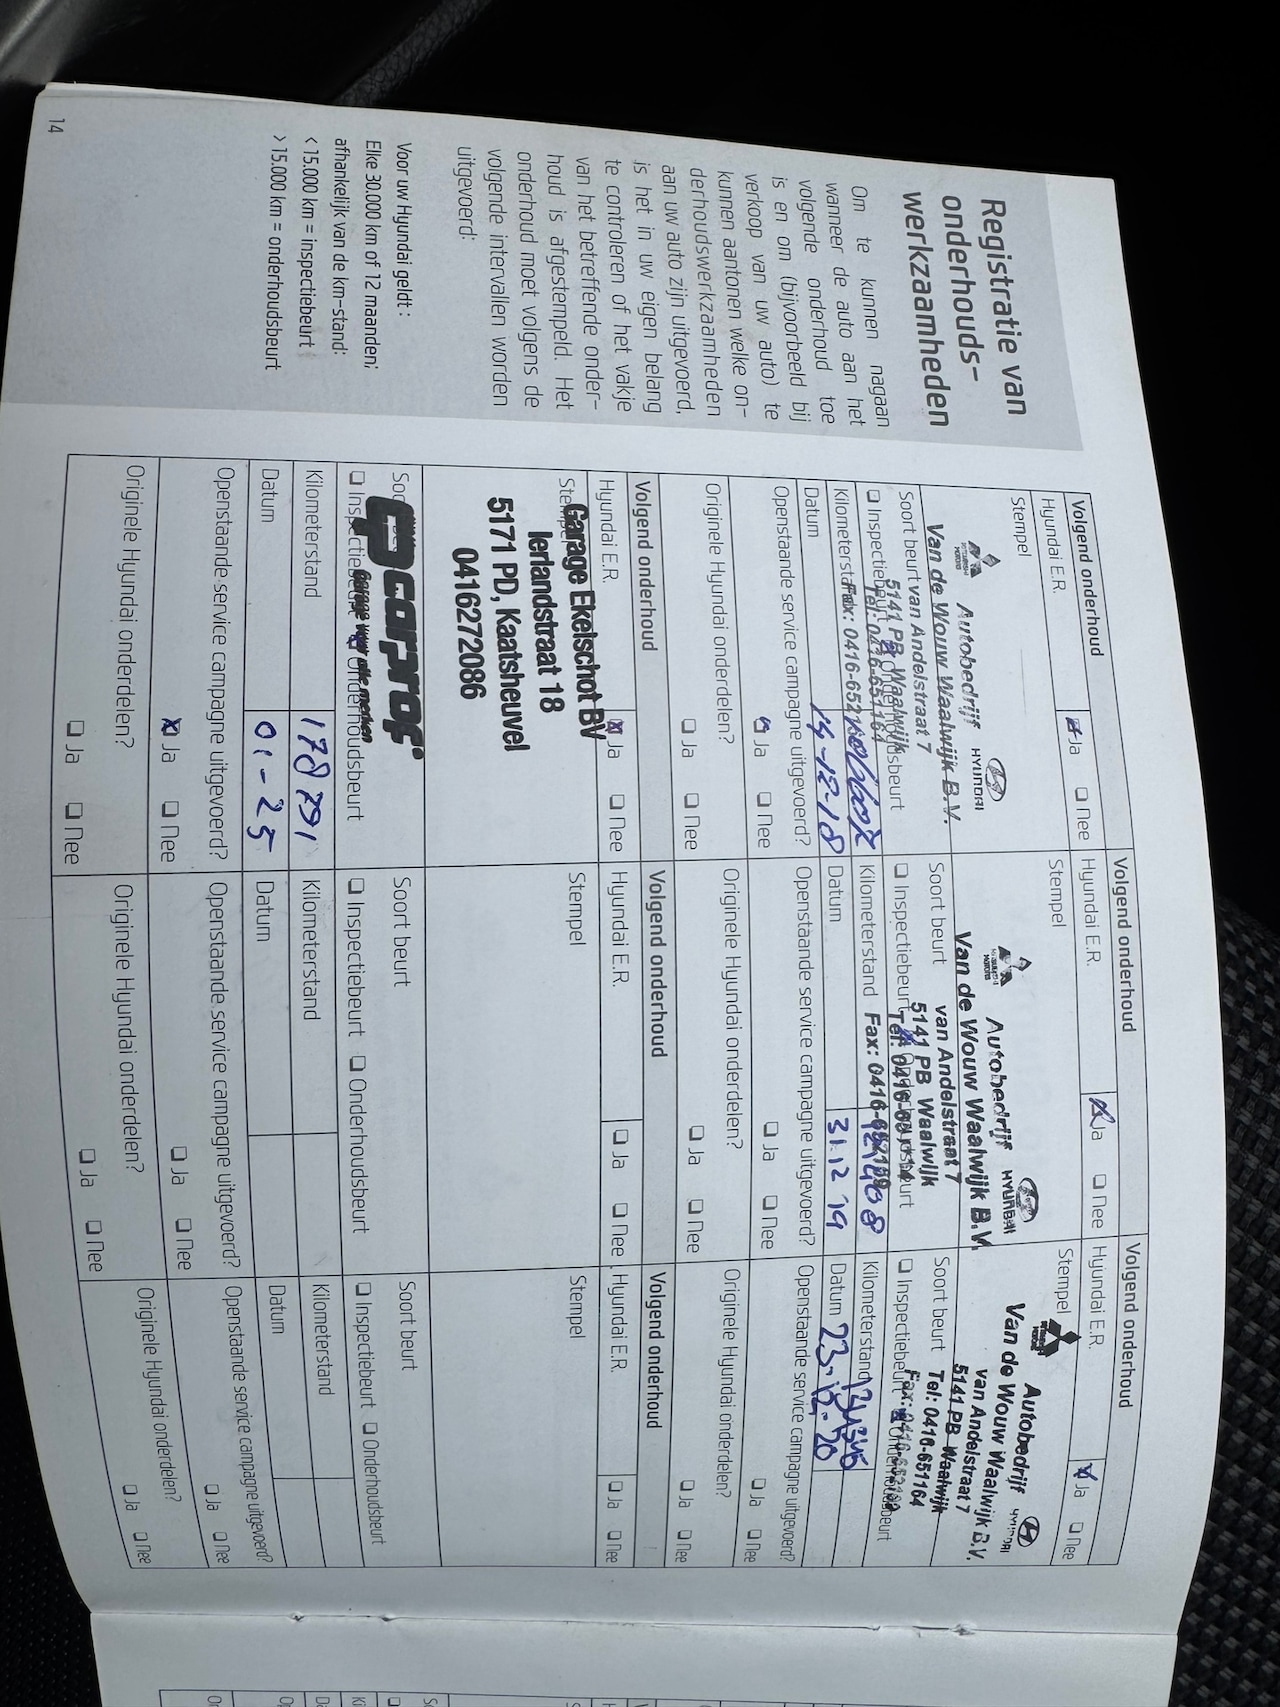 Registratie van
onderhouds-
werkzaamheden
Om te kunnen nagaan
wanneer de auto aan het
volgende onderhoud toe
is en om (bijvoorbeeld bij
verkoop van uw auto) te
kunnen aantonen welke on-
derhoudswerkzaamheden
aan uw auto zijn uitgevoerd,
is het in uw eigen belang
te controleren of het vakje
van het betreffende onder-
houd is afgestempeld. Het
onderhoud moet volgens de
volgende intervallen worden
uitgevoerd:
Voor uw Hyundai geldt :
Elke 30.000 km of 12 maanden;
afhankelijk van de km-stand:
< 15.000 km = inspectiebeurt
> 15.000 km = onderhoudsbeurt
14
Volgend onderhoud
Hyundai E.R. Ja Nee
Stempel
Autobedrijf HYUNDAI
Van de Wouw Waalwijk B.V.
van Andelstraat 7
5141 PB Waalwijk
Tel: 0416-651164
Soort beurt
Inspectiebeurt Onderhoudsbeurt
Kilometerstand
Datum 14-12-18
Openstaande service campagne uitgevoerd?
Ja Nee
Originele Hyundai onderdelen?
Ja Nee
Volgend onderhoud
Hyundai E.R. Ja Nee
Stempel
Autobedrijf HYUNDAI
Van de Wouw Waalwijk B.V.
van Andelstraat 7
5141 PB Waalwijk
Soort beurt
Inspectiebeurt
Kilometerstand
Datum 31.12 19
Openstaande service campagne uitgevoerd?
Ja Nee
Originele Hyundai onderdelen?
Ja Nee
Volgend onderhoud
Hyundai E.R. Ja Nee
Stempel
Autobedrijf HYUNDAI
Van de Wouw Waalwijk B.V.
van Andelstraat 7
5141 PB Waalwijk
Tel: 0416-651164
Soort beurt
Inspectiebeurt Onderhoudsbeurt
Kilometerstand
Datum 23-12-20
Openstaande service campagne uitgevoerd?
Ja Nee
Originele Hyundai onderdelen?
Ja Nee
Volgend onderhoud
Hyundai E.R. Ja Nee
Stempel
Garage Ekelschot BV
Ierlandstraat 18
5171 PD, Kaatsheuvel
0416272086
carprof
Garage voor alle merken
Inspectiebeurt Onderhoudsbeurt
Kilometerstand 178 291
Datum 01-25
Openstaande service campagne uitgevoerd?
Ja Nee
Originele Hyundai onderdelen?
Ja Nee
Volgend onderhoud
Hyundai E.R. Ja Nee
Stempel
Soort beurt
Inspectiebeurt Onderhoudsbeurt
Kilometerstand
Datum
Openstaande service campagne uitgevoerd?
Ja Nee
Originele Hyundai onderdelen?
Ja Nee
Volgend onderhoud
Hyundai E.R. Ja Nee
Stempel
Soort beurt
Inspectiebeurt Onderhoudsbeurt
Kilometerstand
Datum
Openstaande service campagne uitgevoerd?
Ja Nee
Originele Hyundai onderdelen?
Ja Nee